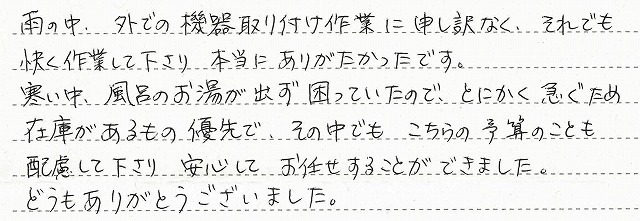 雨の中、外での機器取り付け作業に申し訳なく、それでも
快く作業して下さり 本当にありがたかったです。
寒い中、風呂のお湯が出ず困っていたので、とにかく急ぐため
在庫があるもの優先で、その中でも こちらの予算のことも
配慮して下さり 安心して お任せすることができました。
どうもありがとうございました。